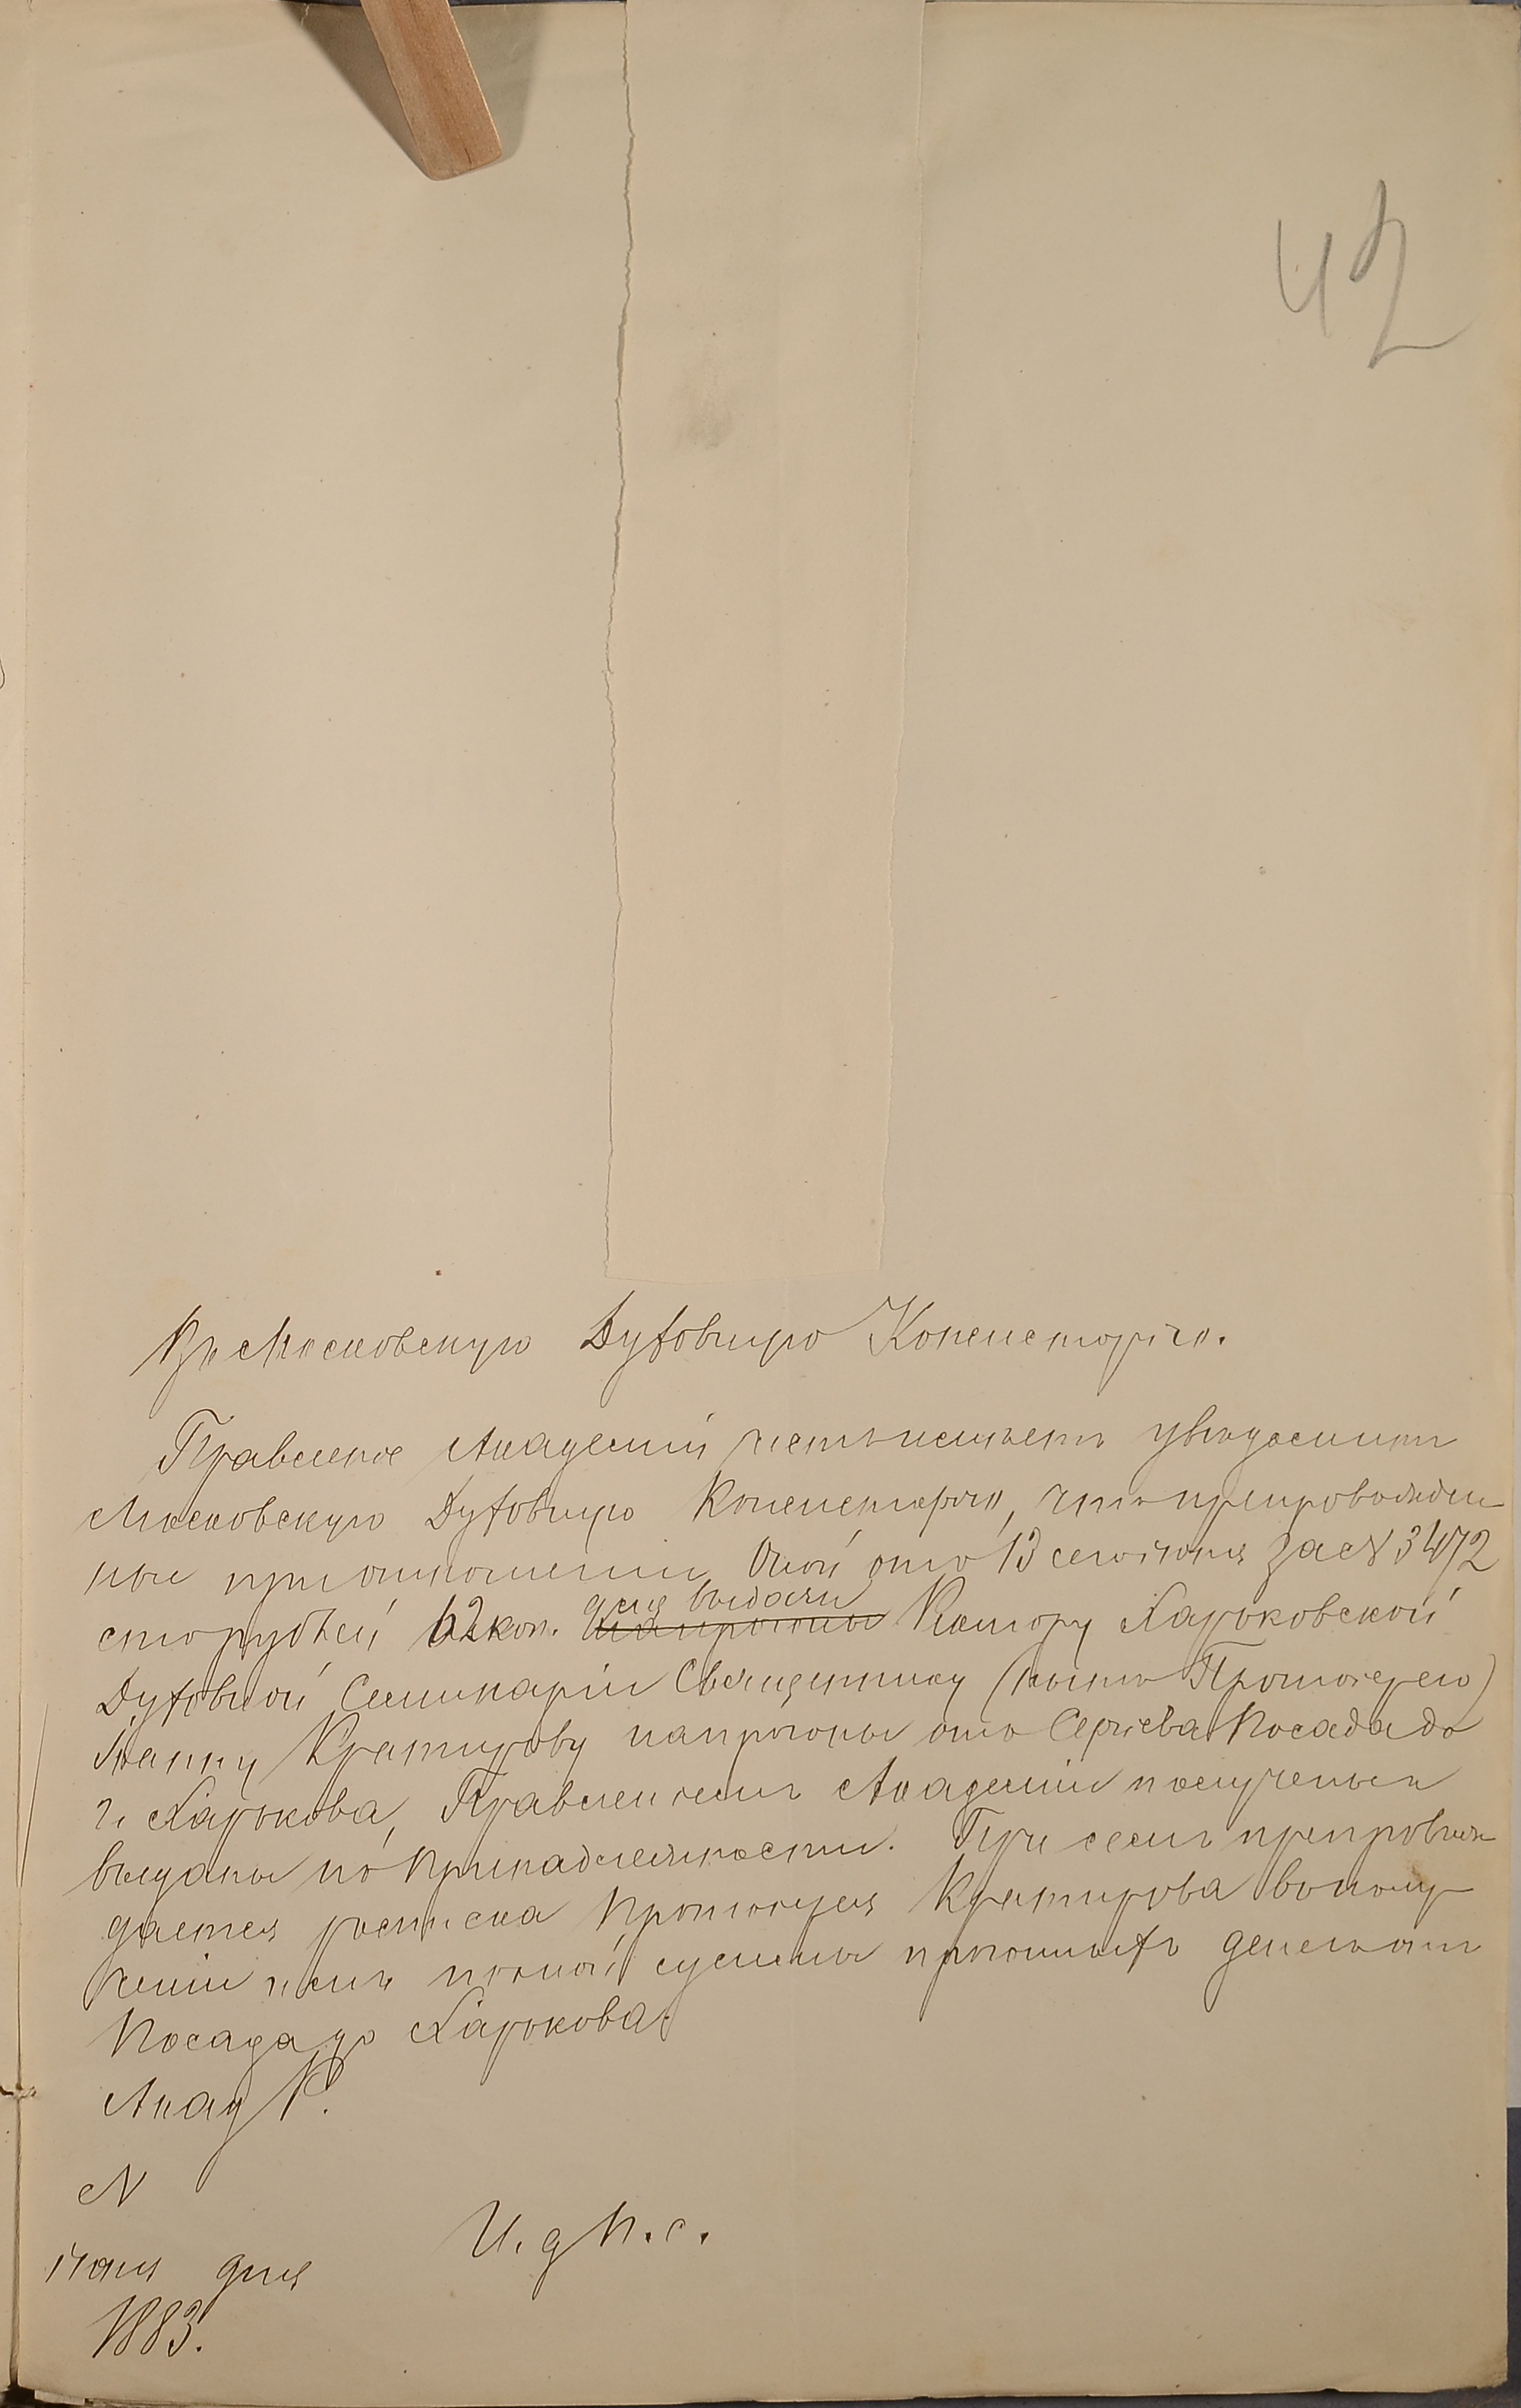 42
Въ Московскую Духовную Консисторію.
Правленіе Академіи честь имѣетъ увѣдомить
Московскую Духовную Консисторію, что препровожден-
ные при отношеніи Оной отъ 13 сего іюня за № 3472
сто рублей 62 коп. для выдачи на прогоны Ректору Харьковской
Духовной Семинаріи Священнику (нынѣ Протоіерею)
Іоанну Кратирову на прогоны отъ Сергіева Посада до
г. Харькова, Правленіемъ Академіи получены и
выданы по принадлежности. При семъ препровож-
дается росписка Протоіерея Кратирова въ полу-
ченіи имъ полной суммы прогонныхъ денегъ отъ
Посада до Харькова.
Акад Р.
N
Іюня дня
1883.
И. д П. с.